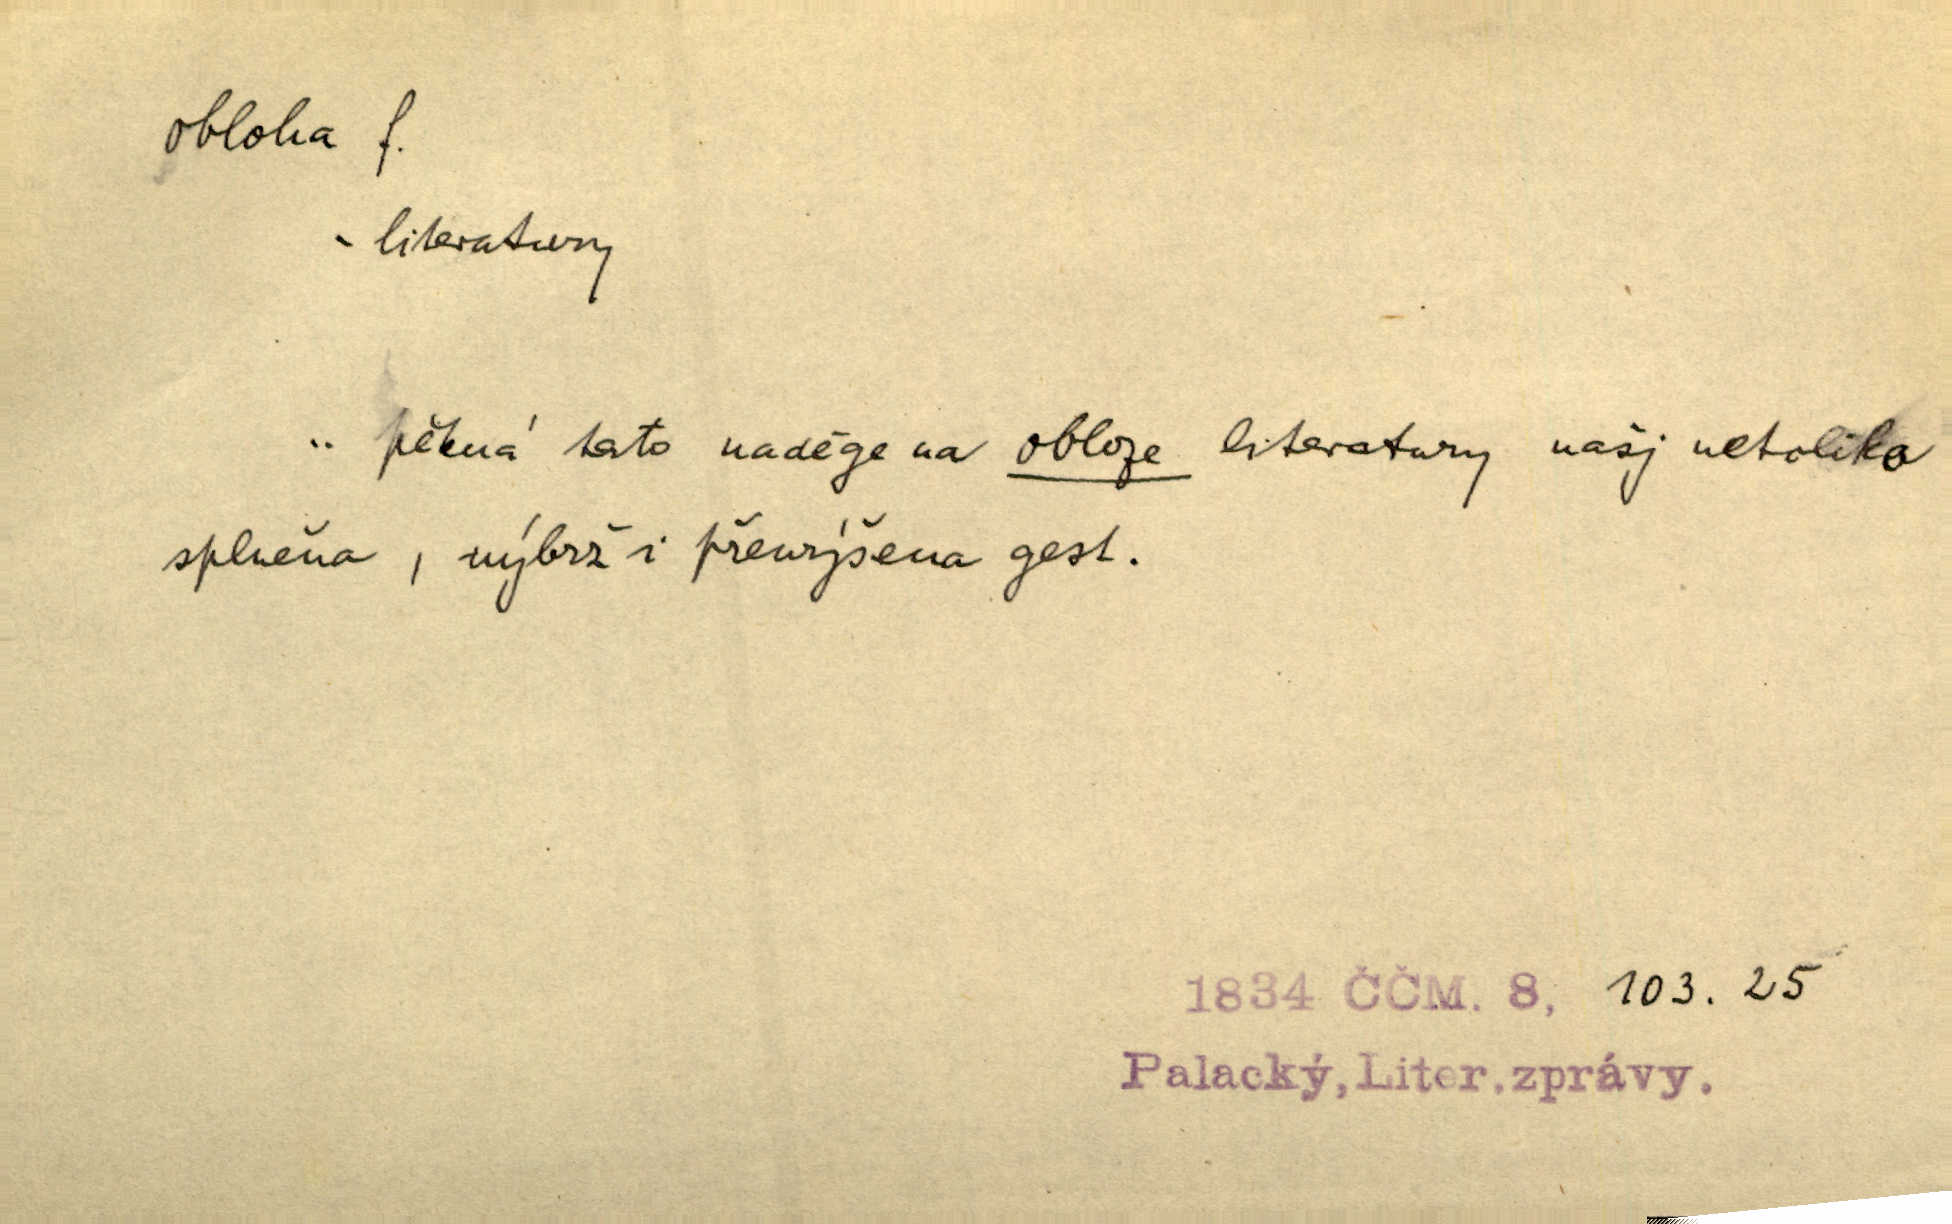 obloha f.
- literatury
.. pěkná tato naděge na obloze literatury našj netoliko
splněna, nýbrž i přewýšena gest.
1834 ČČM. 8, 103. 25
Palacký, Liter. zprávy.